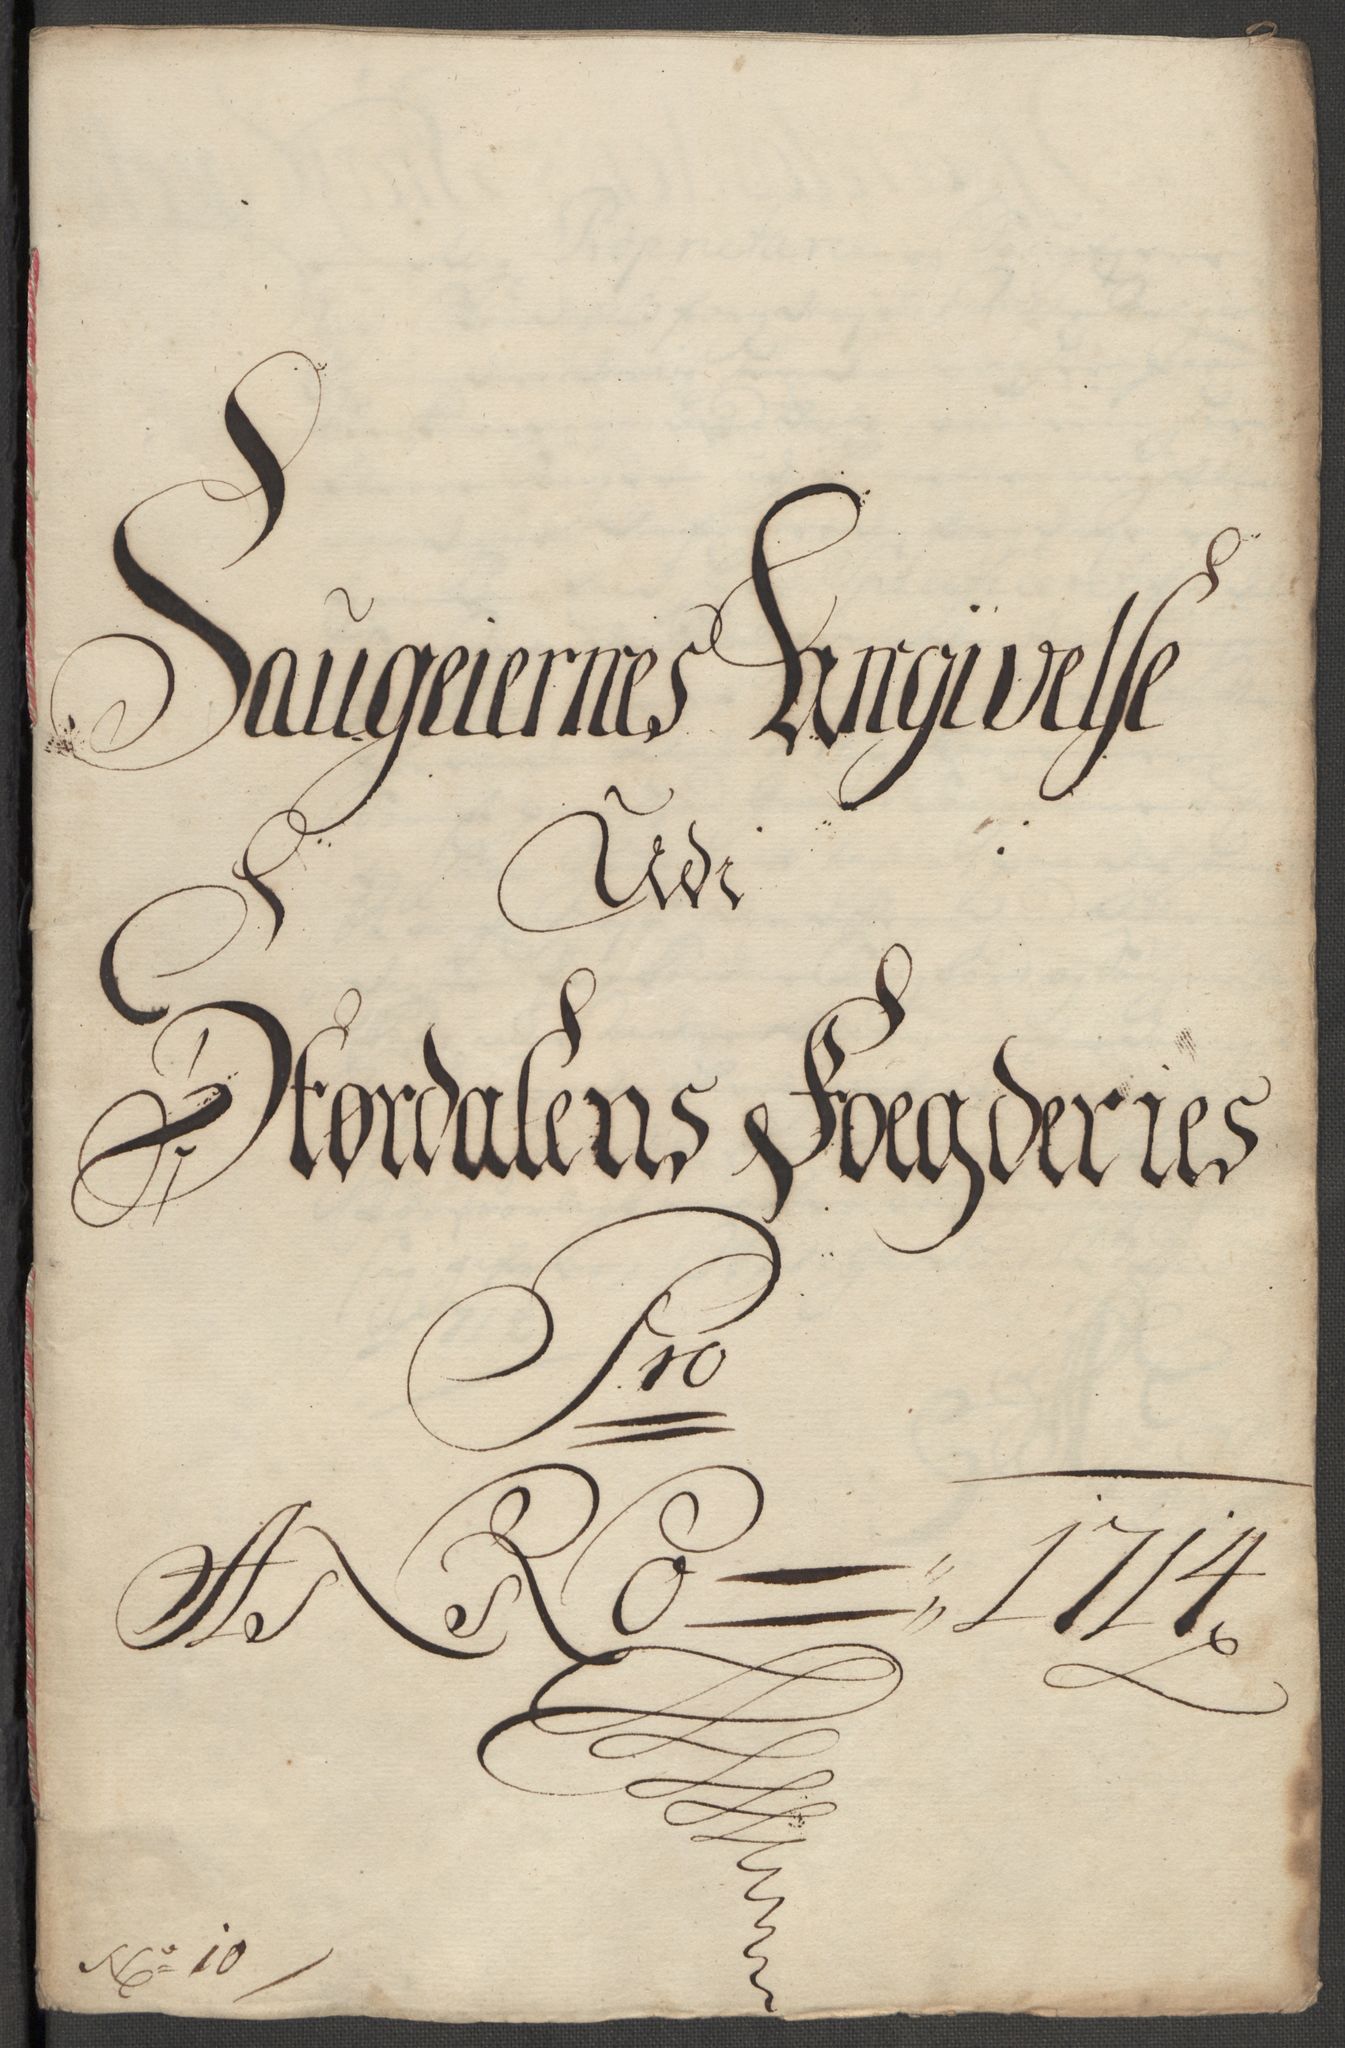 Saugeiernes Angivelse
Udi
Størdalens Foegderies
Pro
ANNO = 1714
No: 10